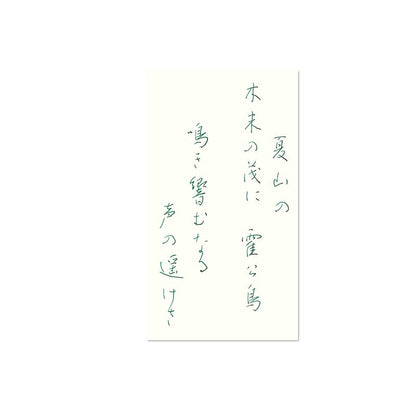 夏山の
木末の茂に 霍公鳥
鳴き響むなる
声の遥けさ